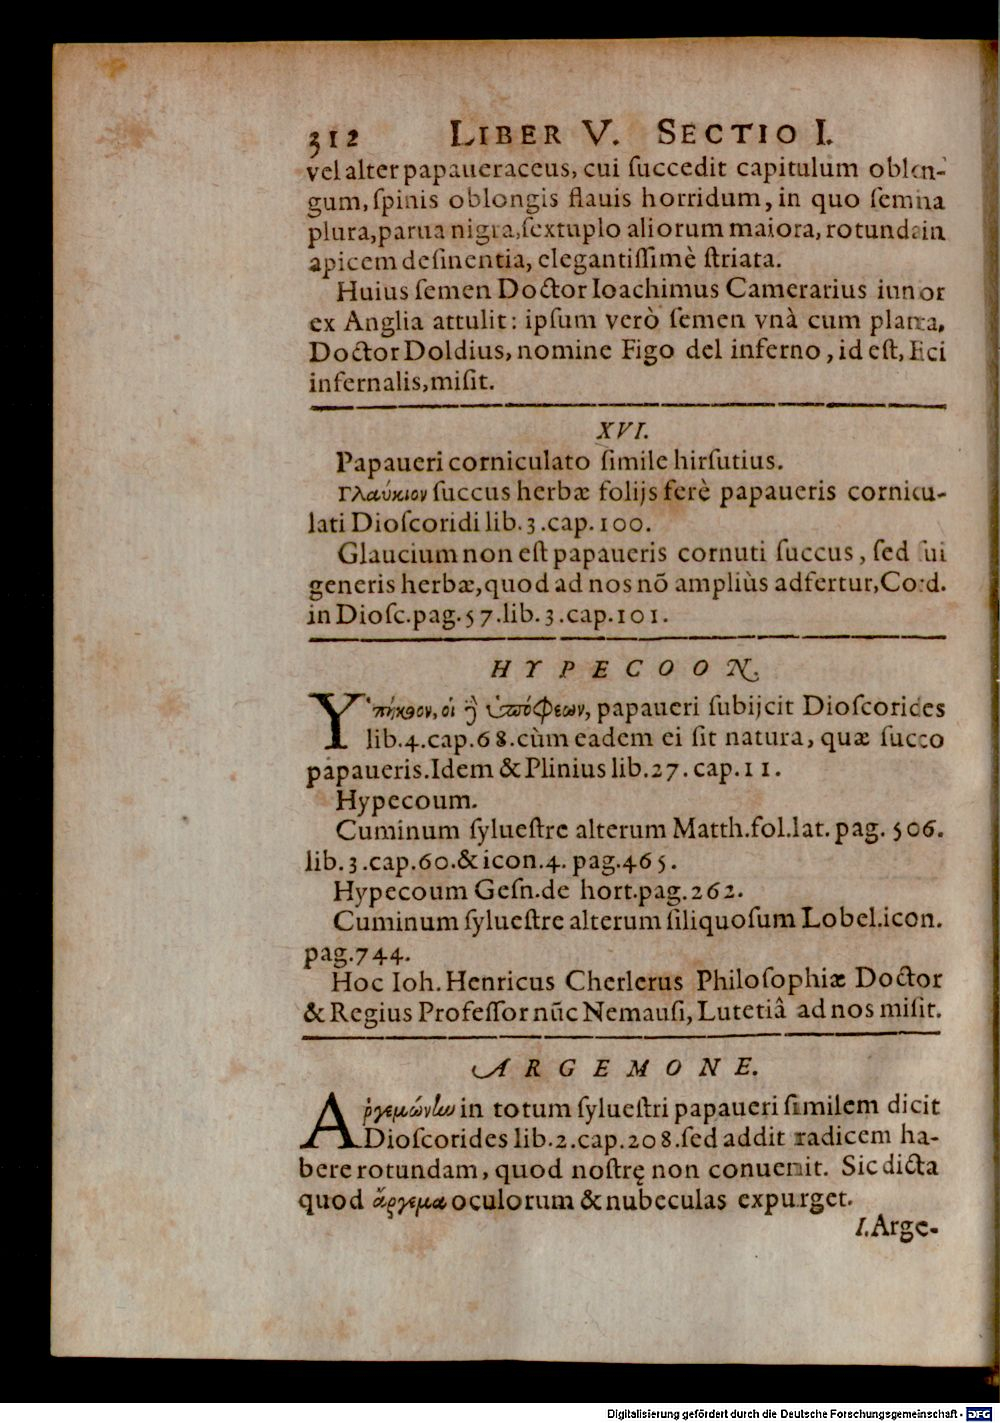 312 LIBER V. SECTIO I.
vel alter papaueraceus, cui ſuccedit capitulum oblon-
gum, ſpinis oblongis flauis horridum, in quo ſemina
plura, parua nigra, ſextuplo aliorum maiora, rotunda in
apicem deſinentia, elegantiſſimè ſtriata.
Huius ſemen Doctor Ioachimus Camerarius iunior
ex Anglia attulit: ipſum verò ſemen vnà cum planta,
Doctor Doldius, nomine Figo del inferno, id eſt, Fici
infernalis, miſit.
XVI.
Papaueri corniculato ſimile hirſutius.
Γλαύκιον ſuccus herbæ folijs ferè papaueris cornicu-
lati Dioſcoridi lib. 3. cap. 100.
Glaucium non eſt papaueris cornuti ſuccus, ſed ſui
generis herbæ, quod ad nos nõ ampliùs adfertur, Cord.
in Dioſc. pag. 57. lib. 3. cap. 101.
HYPECOON.
Ὑπήκοον, οἱ ἢ ὑπόφεων, papaueri ſubijcit Dioſcorides
lib. 4. cap. 68. cùm eadem ei ſit natura, quæ ſucco
papaueris. Idem & Plinius lib. 27. cap. 11.
Hypecoum.
Cuminum ſylueſtre alterum Matth. fol. lat. pag. 506.
lib. 3. cap. 60. & icon. 4. pag. 465.
Hypecoum Geſn. de hort. pag. 262.
Cuminum ſylueſtre alterum ſiliquoſum Lobel. icon.
pag. 744.
Hoc Ioh. Henricus Cherlerus Philoſophiæ Doctor
& Regius Profeſſor nũc Nemauſi, Lutetiâ ad nos miſit.
ARGEMONE.
Ἀργεμώνην in totum ſylueſtri papaueri ſimilem dicit
Dioſcorides lib. 2. cap. 208. ſed addit radicem ha-
bere rotundam, quod noſtrę non conuenit. Sic dicta
quod ἄργεμα oculorum & nubeculas expurget.
I. Arge-
Digitalisierung gefördert durch die Deutsche Forschungsgemeinschaft - DFG